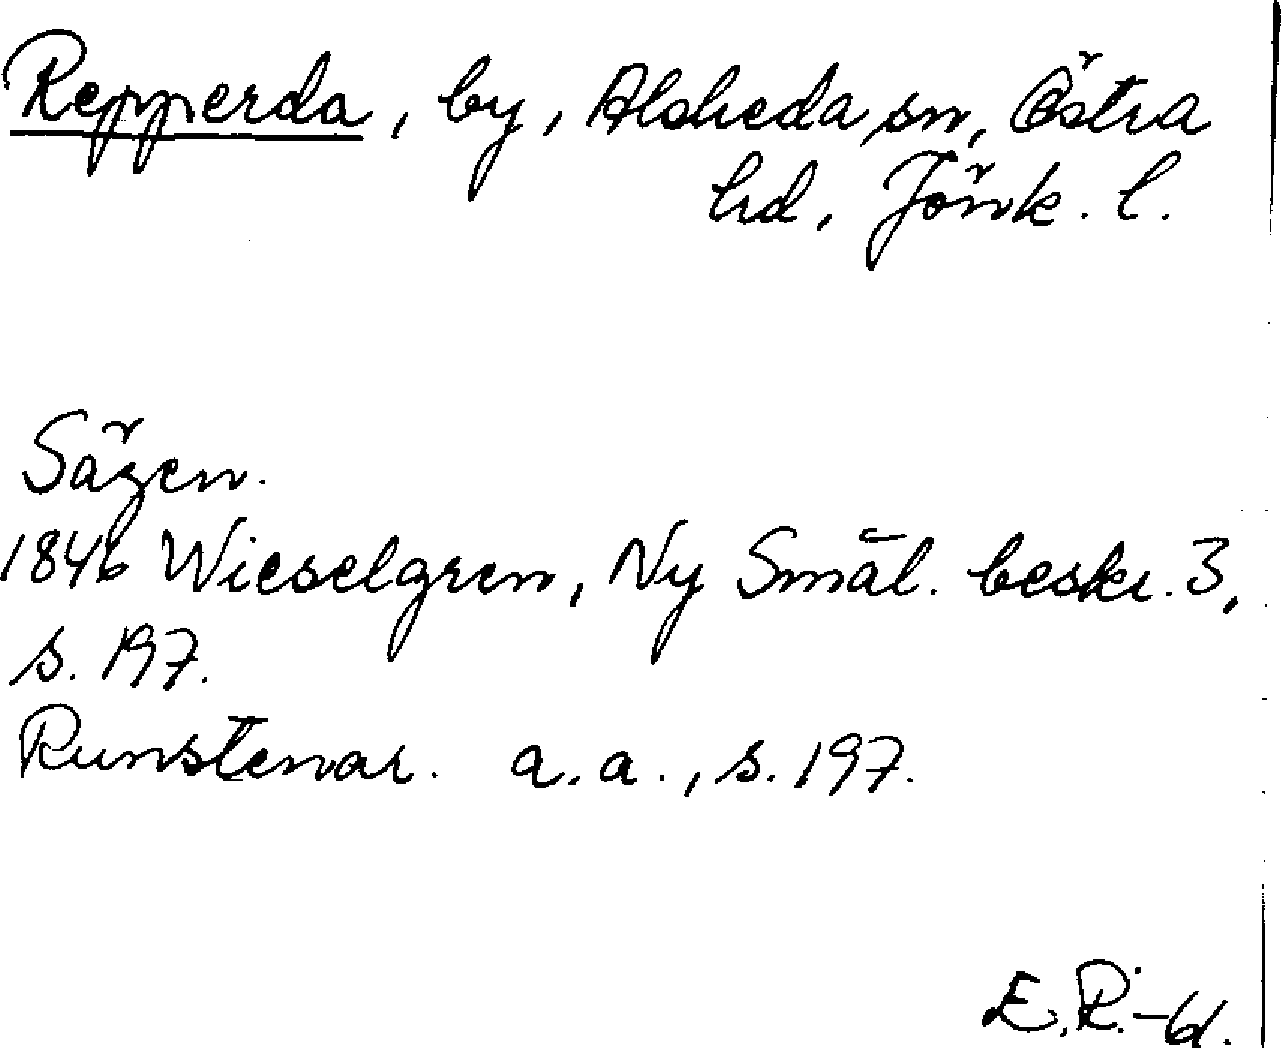 Repperda, by, Alsheda sn, Östra
hd, Jönk. l.
Sägen.
1846 Wieselgren, Ny Smål. beskr. 3,
s. 197.
Runstenar. a.a., s. 197.
E.R.-61.